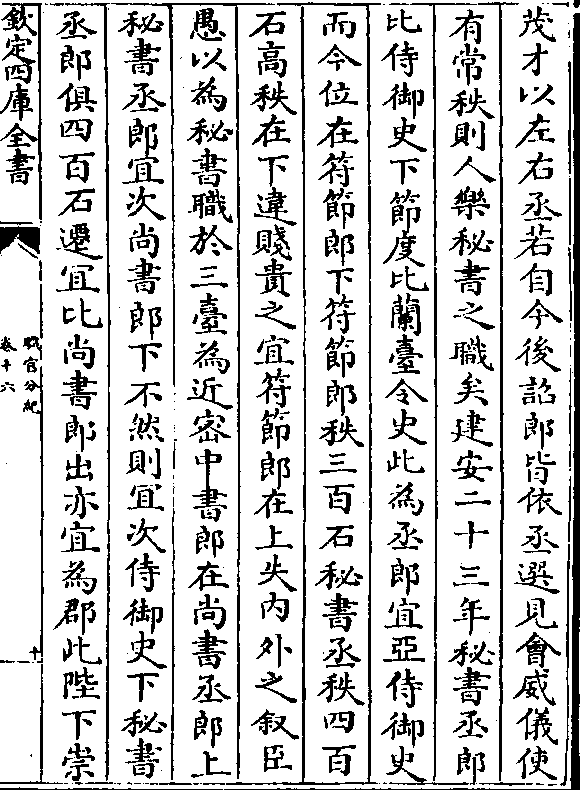 茂才以左右丞若自今後詔郎皆依丞選見會威儀使
有常秩則人樂秘書之職矣建安二十三年秘書丞郎
比侍御史下節度比蘭臺令史此為丞郎宜亞侍御史
而今位在符節郎下符節郎秩三百石秘書丞秩四百
石高秩在下違賤貴之宜符節郎在上失内外之叙臣
愚以為秘書職於三臺為近密中書郎在尚書丞郎上
秘書丞郎宜次尚書郎下不然則宜次侍御史下秘書
丞郎俱四百石遷宜比尚書郎出亦宜為郡此陛下崇
欽定四庫全書
職官分紀
卷十六
十